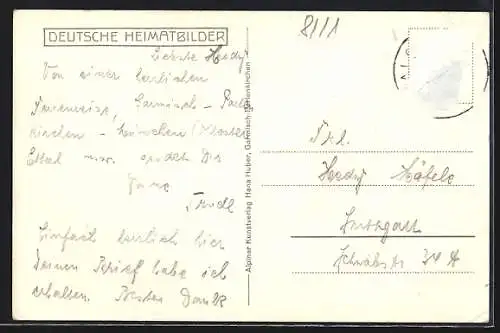 DEUTSCHE HEIMATBILDER
8/11
Liebste Hedy!
Von einer herrlichen
Garmisch – Parten
kirchen – München (Kloster
Ettal
Deine
Trudl
Einfach herrlich hier
Deinen Brief habe ich
erhalten. Besten Dank
Alpiner Kunstverlag Hans Huber, Garmisch-Partenkirchen
Frl.
Hedy Häfele
Stuttgart
Schwabstr 34 A